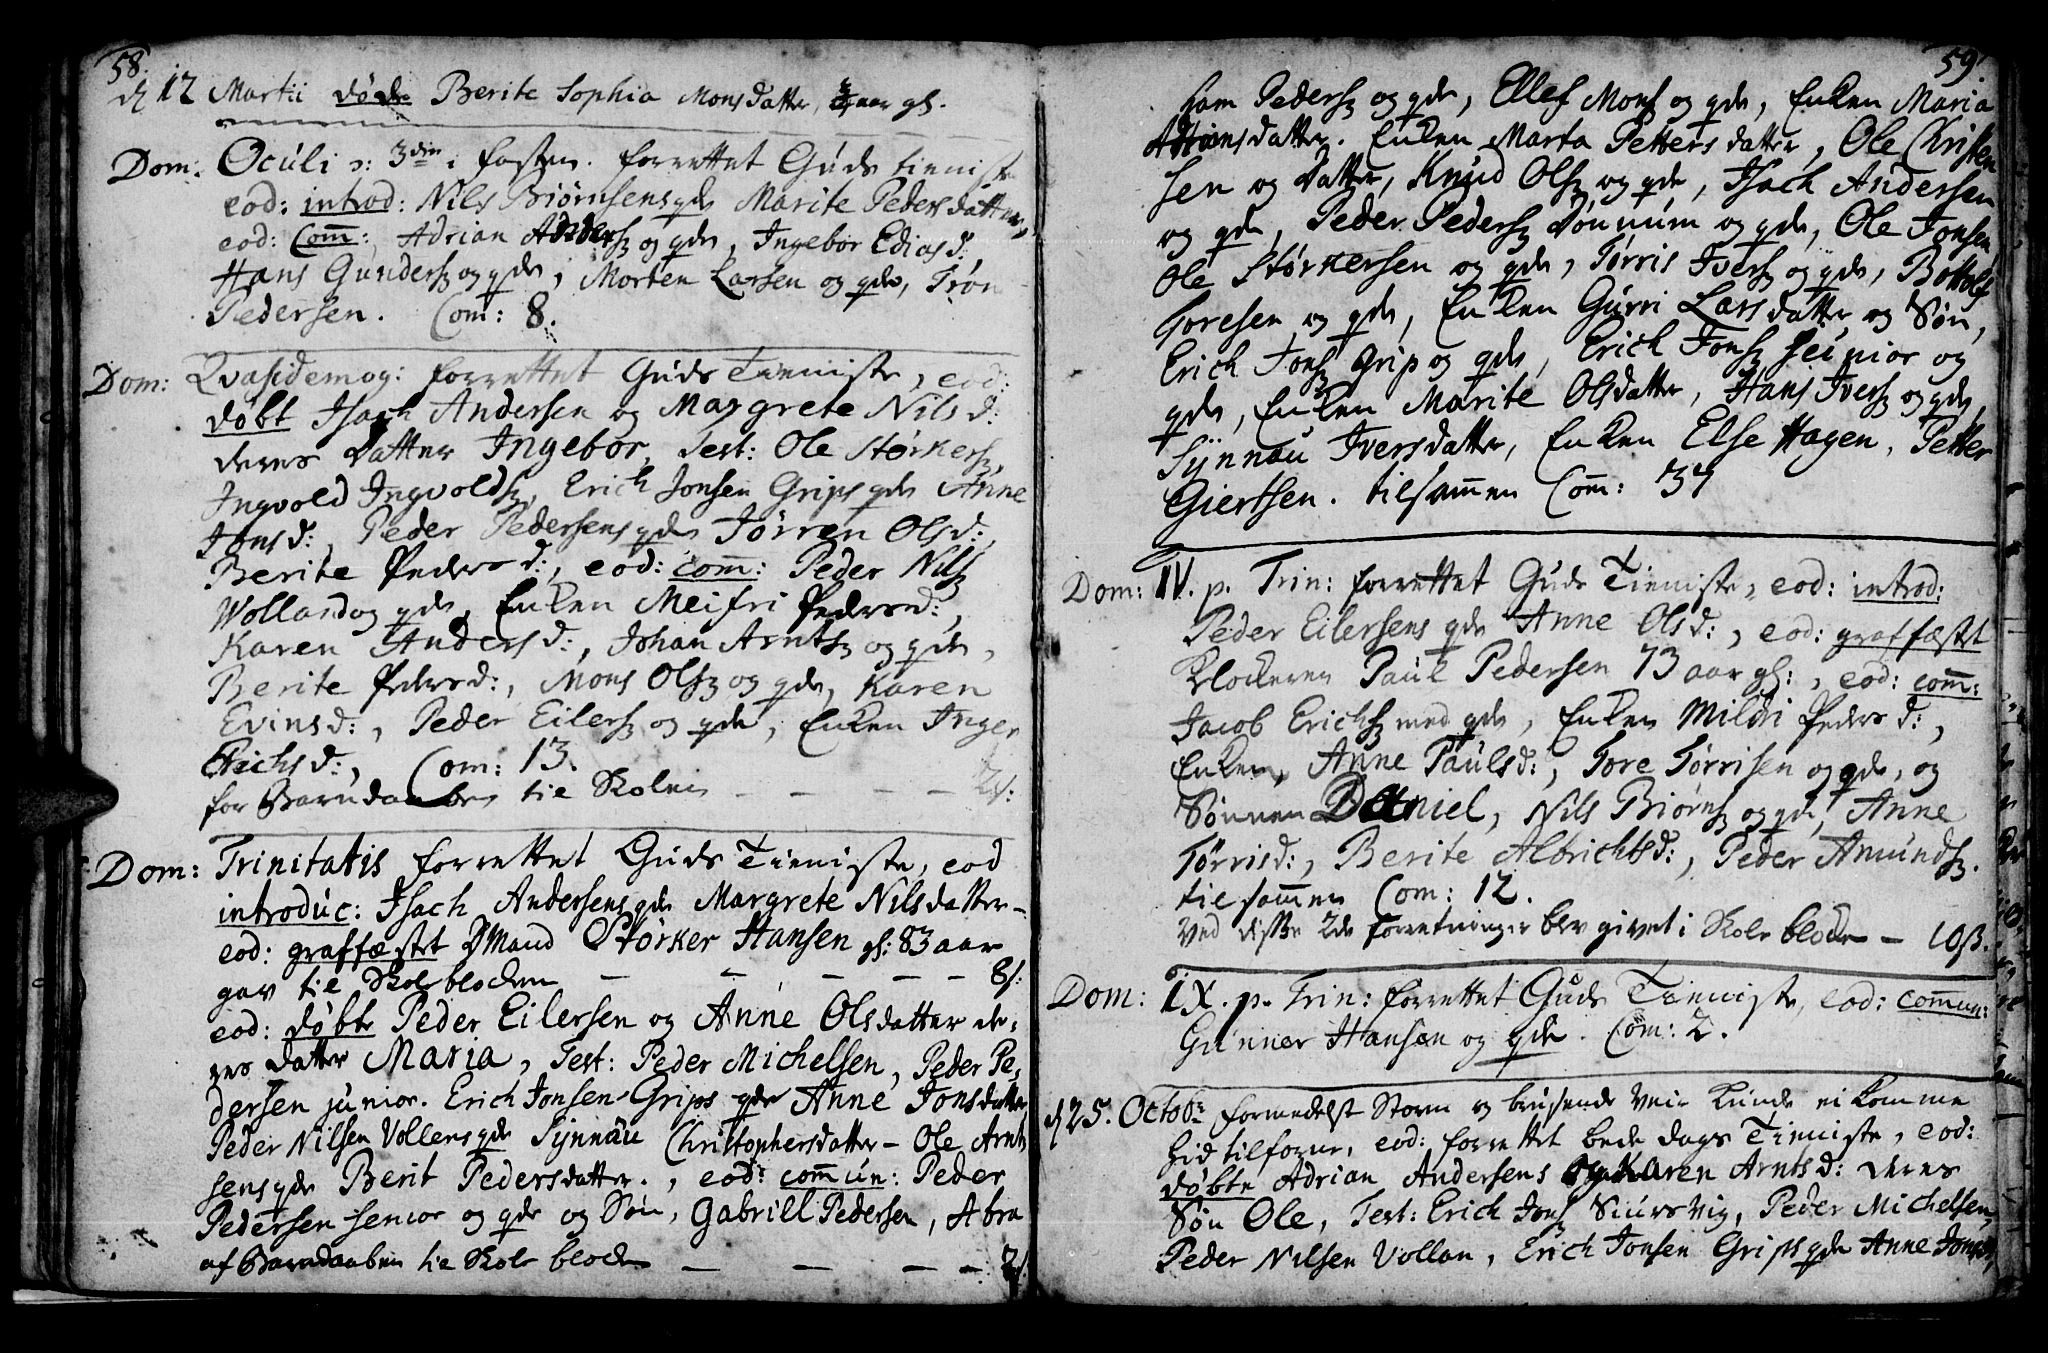 58.
d 12 Martii døde Berite Sophia Monsdatter, aar gl.
Dom: Oculi ɔ: 3die i fasten. forrettet Guds tieniste
eod: introd: Nils Biørnsens qde Marite Pedersdatter,
eod: Com: Adrian Anders: og qde, Ingebor Ediasd:
Hans Gunders: og qde, Morten Larsen og qde, Trøn
Pedersen. Com: 8.
Dom: Qvasidemog: forrettet Guds Tieniste, eod:
døbt Isach Andersen og Margrete Nilsd:
deres datter Ingebor, Test: Ole Størkers:,
Ingvold Ingvolds:, Erich Jonsen Grips qde Anne
Jonsd:, Peder Pedersens qde Jørren Olsd:,
Berite Pedersd:, eod: com: Peder Nils:
Wollan og qde, Enken Meifri Pedersd:,
Karen Andersd:, Johan Arnts: og qde,
Berite Pedersd:, Mons Ols: og qde, Karen
Evinsd:, Peder Eilers: og qde, Enken Inger
Erichsd:, Com: 13.
for Barndaaben til Skolen — — — — 2s:
Dom: Trinitatis forrettet Guds Tieniste, eod
introduc: Isach Andersens qde Margrete Nilsdatter –
eod: graffæstet Mand Størker Hansen gl: 83 aar
gav til Skoleblocken — — — — 8s:
eod: døbte Peder Eilersen og Anne Olsdatter de-
res datter Maria, Test: Peder Michelsen, Peder Pe-
dersen junior. Erich Jonsen Grips qde Anne Jonsdatter
Peder Nilsen Vollens qde Synnau Christophersdatter – Ole Arnt
sens qde Berit Pedersdatter., eod: commun: Peder
Pedersen senior og qde og Søn, Gabriell Pedersen, Abra
af Barndaaben til Skole blocken — — — — 2s
59
ham Peders: og qde, Ellef Mons: og qde, Enken Maria
Adriansdatter. Enken Marta Pettersdatter, Ole Christen
sen og datter, Knud Ols: og qde, Isach Andersen
og qde, Peder Peders: Dønnum og qde, Ole Jonsen
Ole Størkersen og qde, Tørris Ivers: og qde, Bottolf
Toresen og qde, Enken Gurri Larsdatter og Søn,
Erich Jons: Grip og qde, Erich Jons: seunior og
qde, Enken Marite Olsdatter, Hans Ivers: og qde,
Synnau Iversdatter, Enken Else Hagen, Petter
Giertsen. tilsammen Com: 37
Dom: IV. p. Trin: forrettet Guds Tieniste, eod: introd:
Peder Eilersens qde Anne Olsd:, eod: graffæstet
Klockeren Paul Pedersen 73 aar gl:, eod: com:
Jacob Erichs: med qde, Enken Mildri Pedersd:,
Enken, Anne Paulsd:, Tore Tørrisen og qde, og
Sønnen Daniel, Nils Biørns: og qde, Anne
Tørrisd:, Berite Albrichtsd:, Peder Amunds:.
tilsammen Com: 12.
Ved disse 2de forretninger blev givet i Skole blocken – 10ß.
Dom: IX. p. Trin: forrettet Guds Tieniste, eod: commun:
Gunner Hansen og qde. Com: 2.
d 25. Octobr: formedelst Storm og brusende Veir kunde ei komme
hid tilforne, eod: forrettet bede dags Tieniste, eod:
døbte Adrian Andersens og Karen Arntsd: deres
Søn Ole, Test: Erich Jons: Snursvig, Peder Michelsen,
Peder Nilsen Vollan, Erich Jonsen Grips qde Anne Jonsd:,